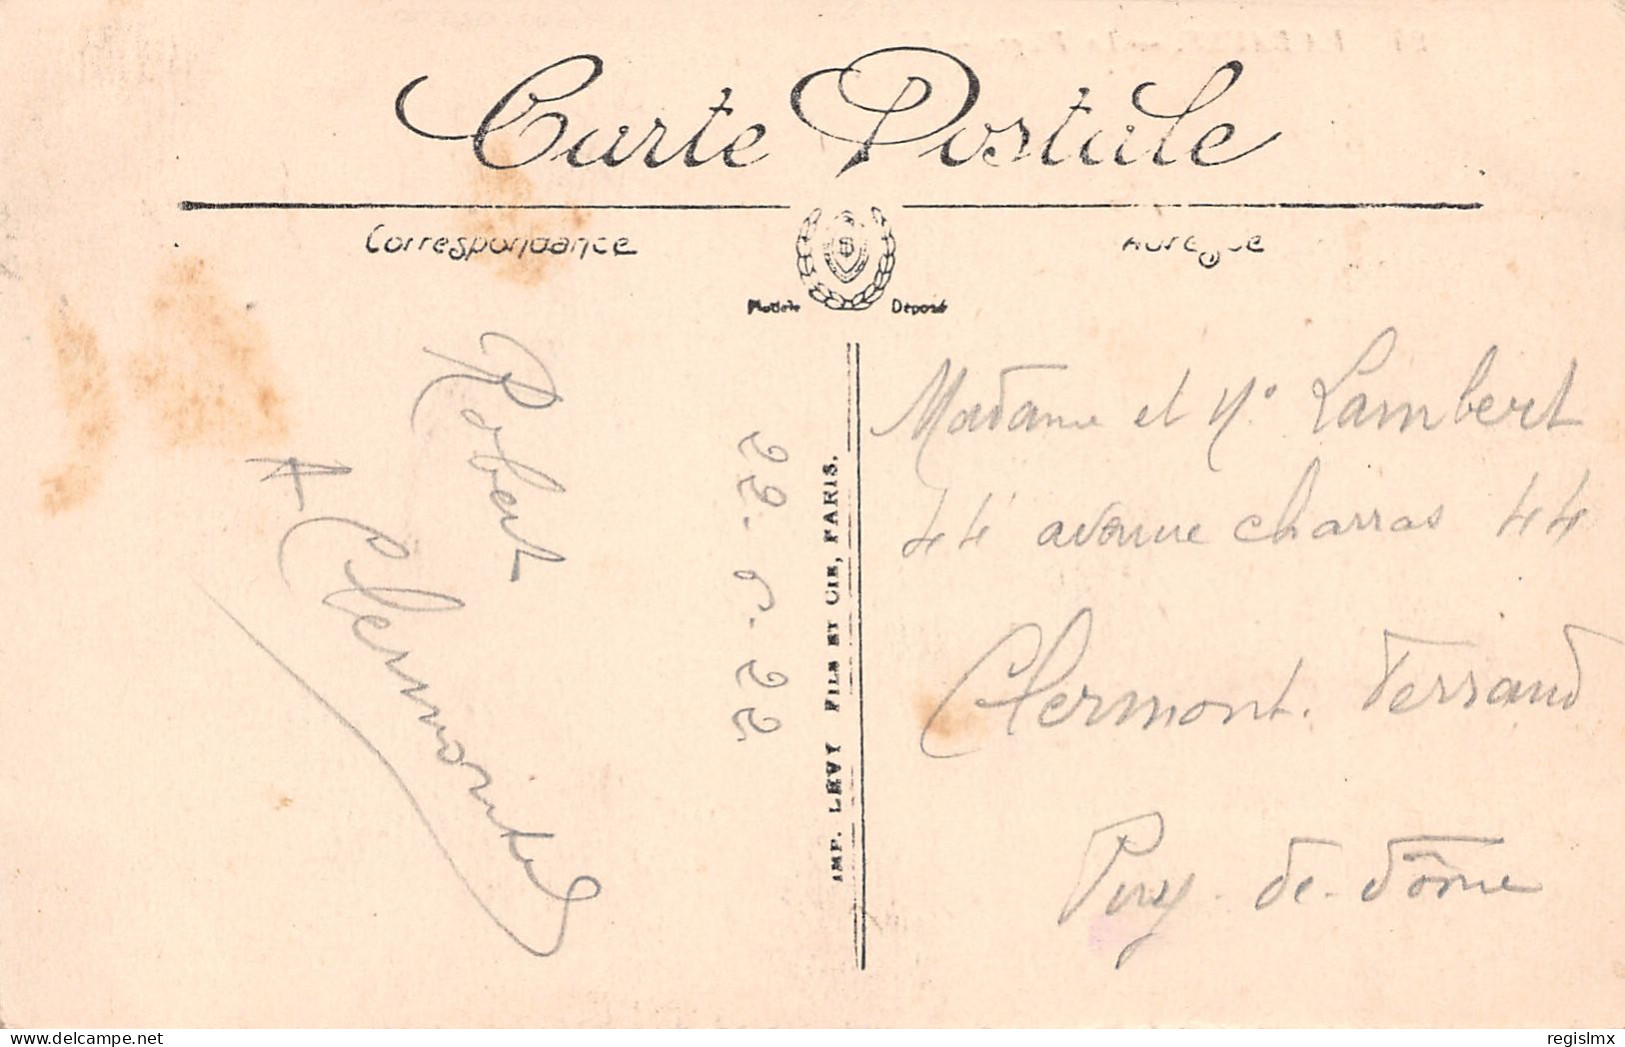 Carte Postale
Correspondance
Adresse
Modèle Déposé
Robert
29.6.22
IMP. LEVY FILS ET CIE, PARIS.
Madame et M. Lambert
44 avenue Charras 44
Clermont. Ferrand
Puy-de-Dôme
regislmx